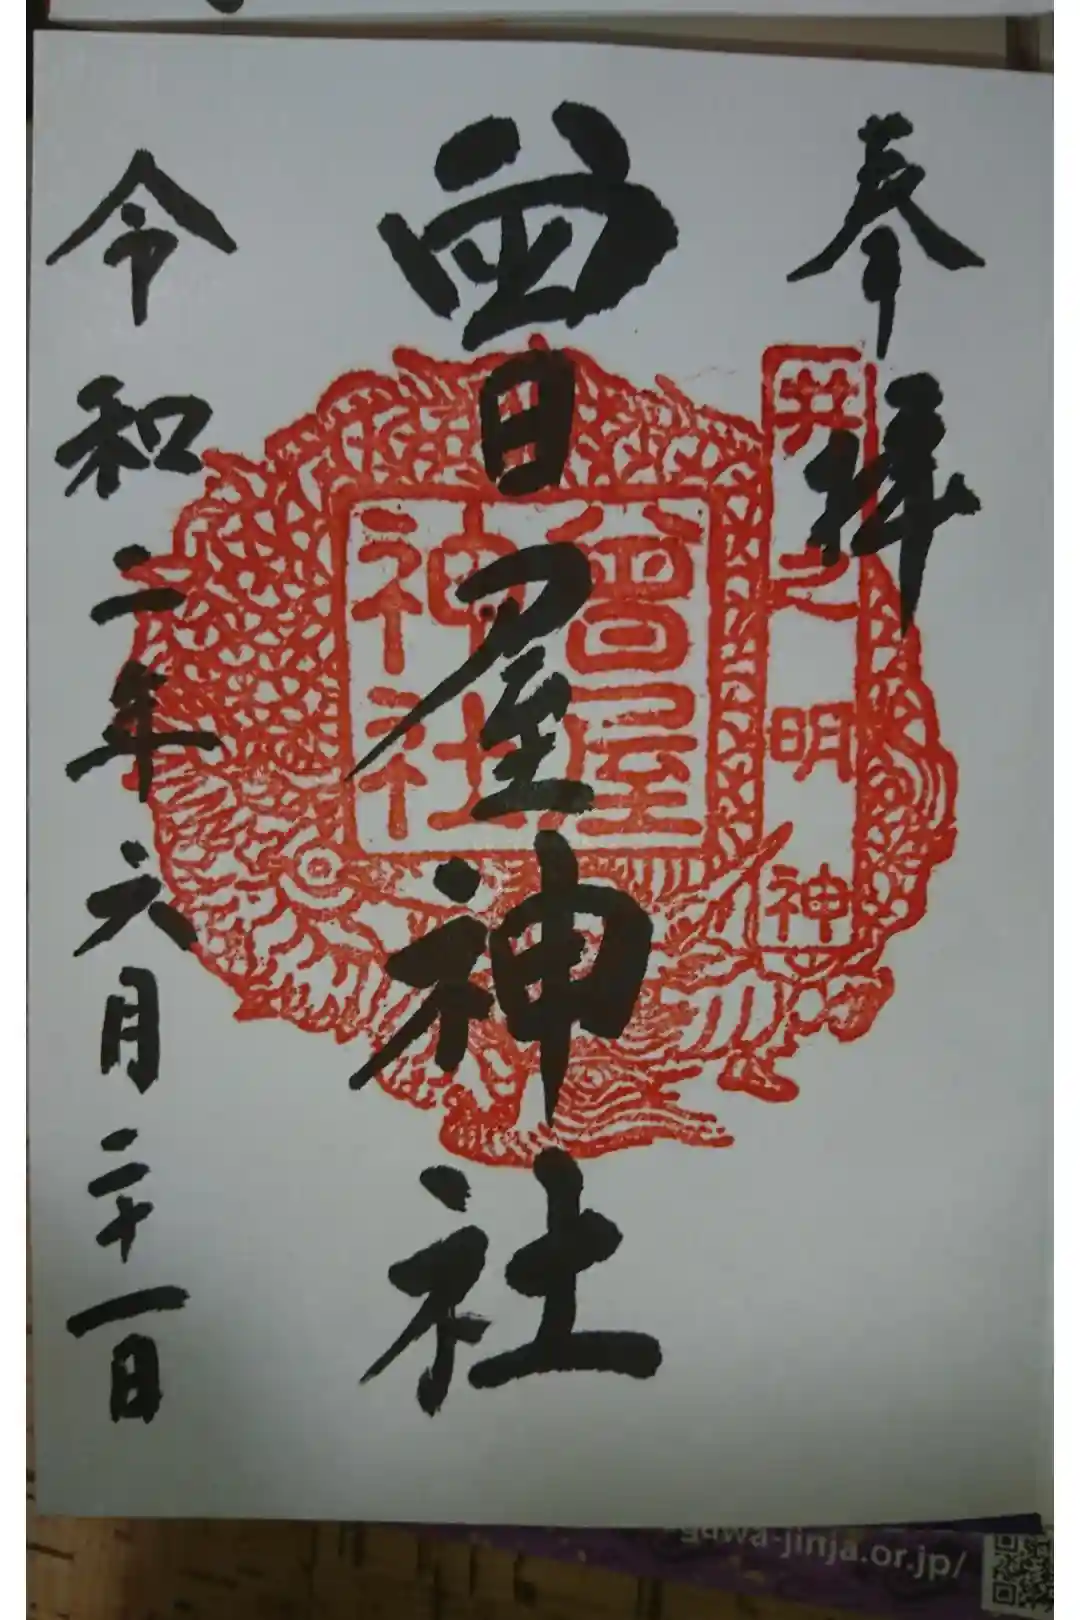 奉拝
井之明神
曽屋神社
曽屋
神社
令和二年六月二十一日
gawa-jinja.or.jp/